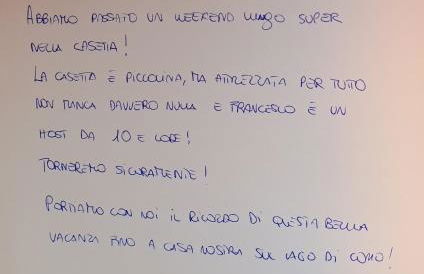 ABBIAMO PASSATO UN WEEKEND LUNGO SUPER
NELLA CASETTA!
LA CASETTA È PICCOLINA, MA ATTREZZATA PER TUTTO
NON MANCA DAVVERO NULLA E FRANCESCO È UN
HOST DA 10 E LODE!
TORNEREMO SICURAMENTE!
PORTIAMO CON NOI IL RICORDO DI QUESTA BELLA
VACANZA FINO A CASA NOSTRA SUL LAGO DI COMO!